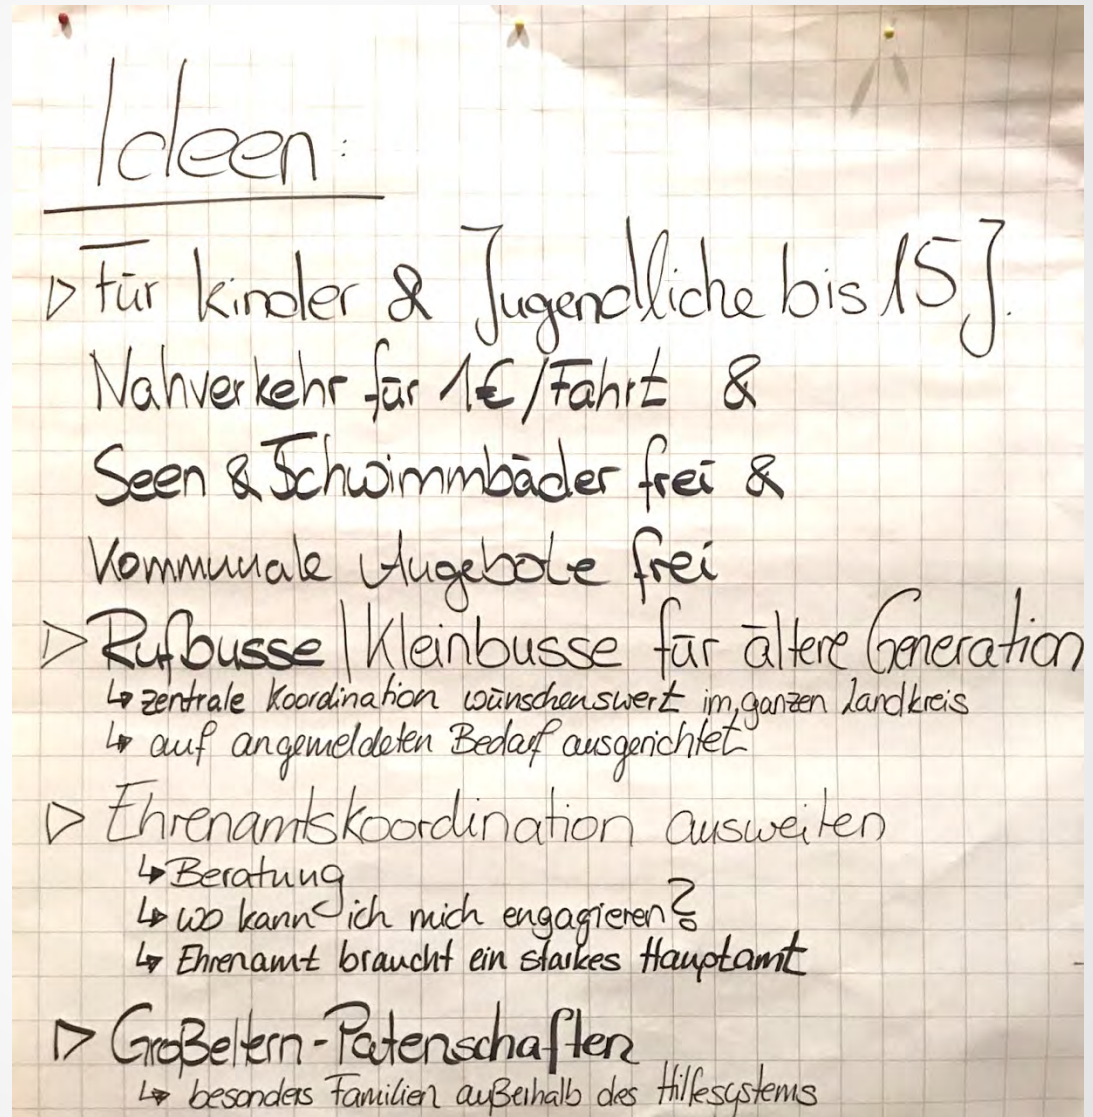 Ideen:
▷ Für Kinder & Jugendliche bis 15 J.
Nahverkehr für 1€/Fahrt &
Seen & Schwimmbäder frei &
Kommunale Angebote frei
▷ Rufbusse | Kleinbusse für ältere Generation
↳ zentrale Koordination wünschenswert im ganzen Landkreis
↳ auf angemeldeten Bedarf ausgerichtet
▷ Ehrenamtskoordination ausweiten
↳ Beratung
↳ wo kann ich mich engagieren?
↳ Ehrenamt braucht ein starkes Hauptamt
▷ Großeltern-Patenschaften
↳ besonders Familien außerhalb des Hilfesystems